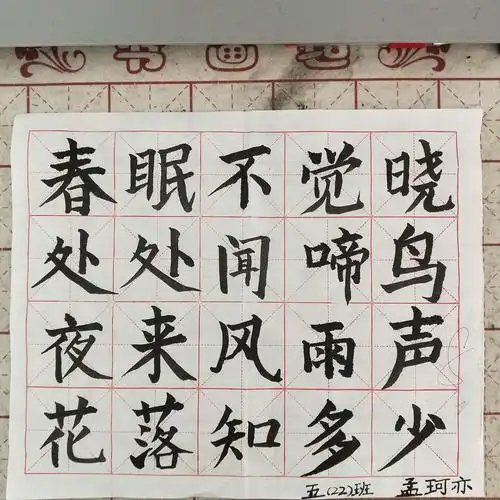 春眠不觉晓
处处闻啼鸟
夜来风雨声
花落知多少
五(22)班 孟珂亦